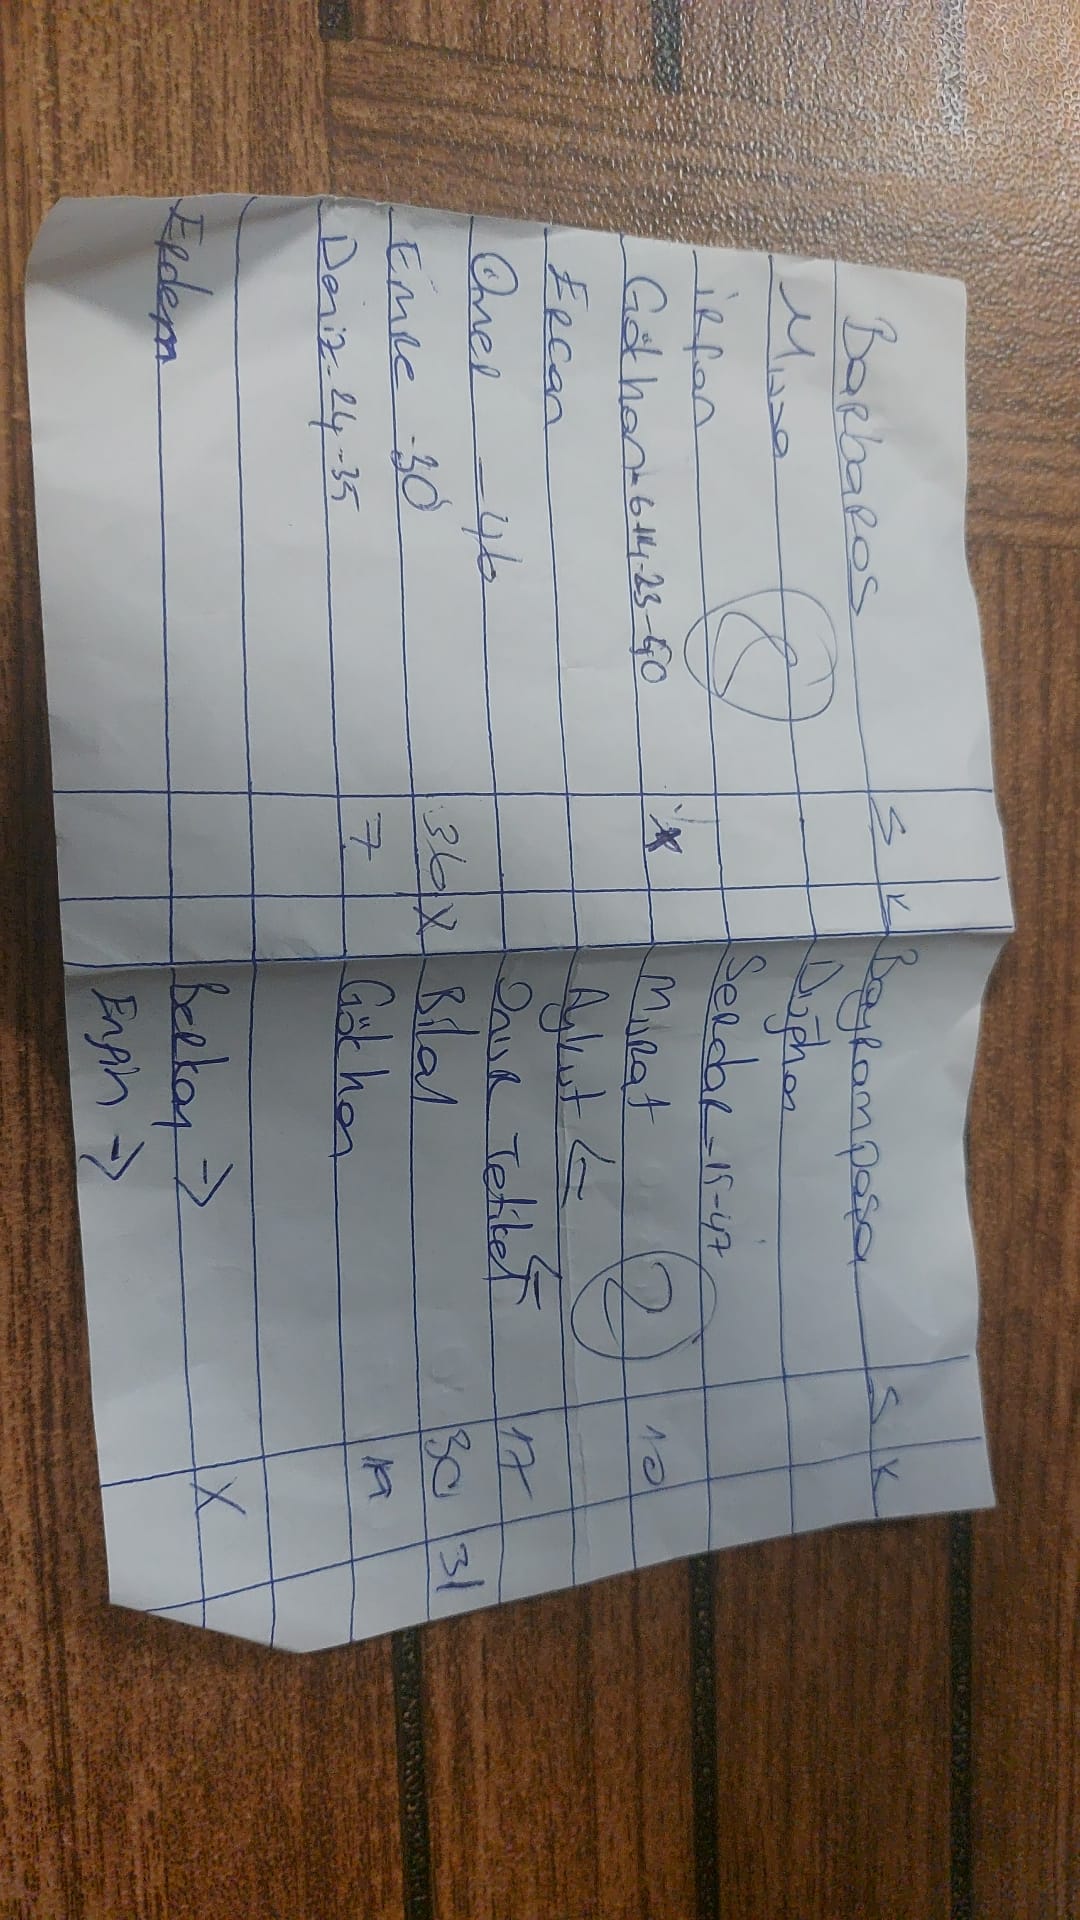 BARbaROS S K BayRampaşa S K
Musa
iRfan 8 SERdaR-15-47
Gökhan-6-14-23-40 MuRat 2 10
ERcan Aykut ←
Ömer -46 OnuR Tetikel ← 17
EmRe -30 36 X Bilal 30 31
Deniz-24-35 7 Gökhan 19
ERdem Berkay → X
Engin →